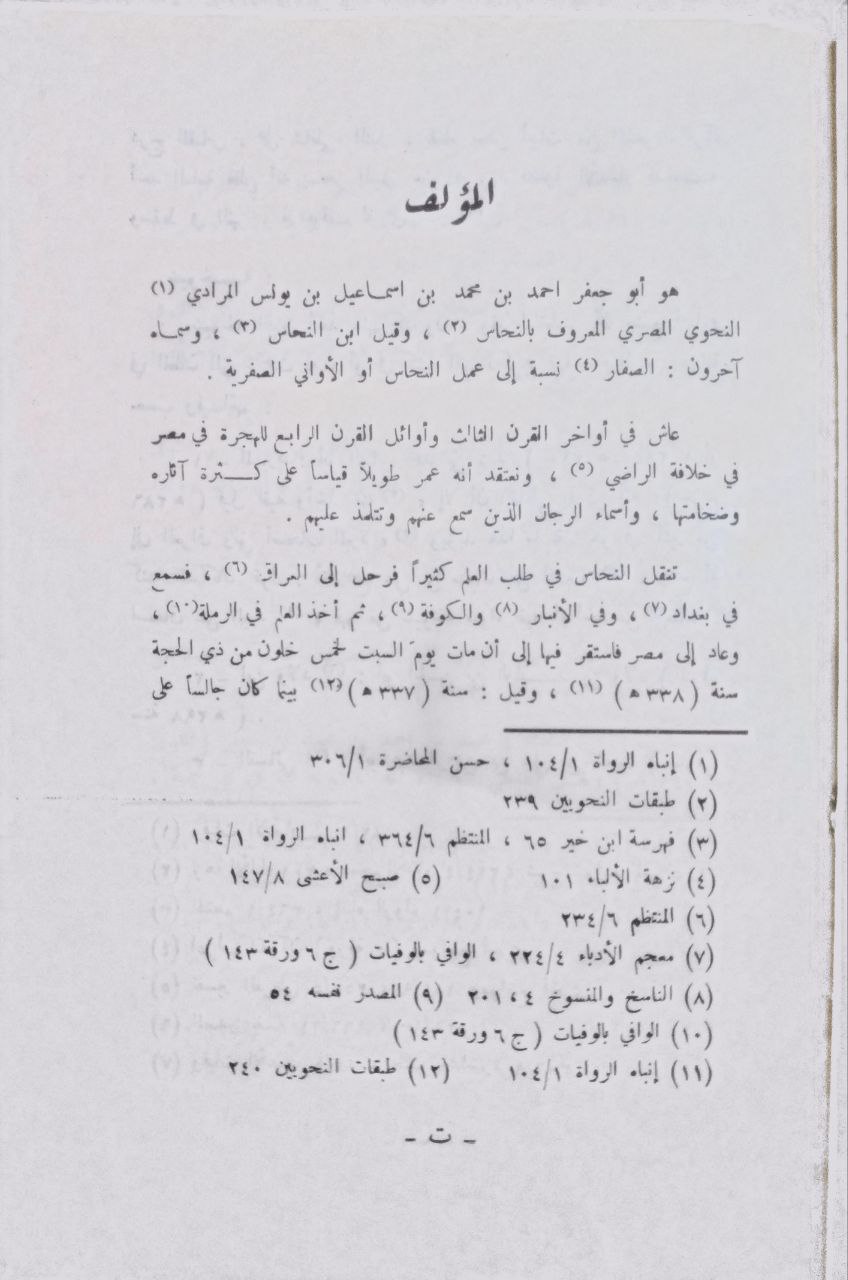 المؤلف
هو أبو جعفر احمد بن محمد بن اسماعيل بن يونس المرادي (١)
النحوي المصري المعروف بالنحاس (٢) ، وقيل ابن النحاس (٣) ، وسماه
آخرون : الصفار (٤) نسبة إلى عمل النحاس أو الأواني الصفرية .
عاش في أواخر القرن الثالث وأوائل القرن الرابع للهجرة في مصر
في خلافة الراضي (٥) ، ونعتقد أنه عمر طويلاً قياساً على كثرة آثاره
وضخامتها ، وأسماء الرجال الذين سمع عنهم وتتلمذ عليهم .
تنقل النحاس في طلب العلم كثيراً فرحل إلى العراق (٦) ، فسمع
في بغداد (٧) ، وفي الأنبار (٨) والكوفة (٩) ، ثم أخذ العلم في الرملة (١٠) ،
وعاد إلى مصر فاستقر فيها إلى أن مات يوم السبت لخمس خلون من ذي الحجة
سنة ( ٣٣٨ ه ) (١١) ، وقيل : سنة ( ٣٣٧ ه ) (١٢) بينما كان جالساً على
(١) إنباه الرواة ١٠٤/١ ، حسن المحاضرة ٣٠٦/١
(٢) طبقات النحويين ٢٣٩
(٣) فهرسة ابن خير ٦٥ ، المنتظم ٣٦٤/٦ ، انباه الرواة ١٠٤/١
(٤) نزهة الألباء ١٠١ (٥) صبح الأعشى ١٤٧/٨
(٦) المنتظم ٢٣٤/٦
(٧) معجم الأدباء ٢٢٤/٤ ، الوافي بالوفيات ( ج ٦ ورقة ١٤٣ )
(٨) الناسخ والمنسوخ ٤ ، ٢٠١ (٩) المصدر نفسه ٥٤
(١٠) الوافي بالوفيات ( ج ٦ ورقة ١٤٣ )
(١١) إنباه الرواة ١٠٤/١ (١٢) طبقات النحويين ٢٤٠
- ت -